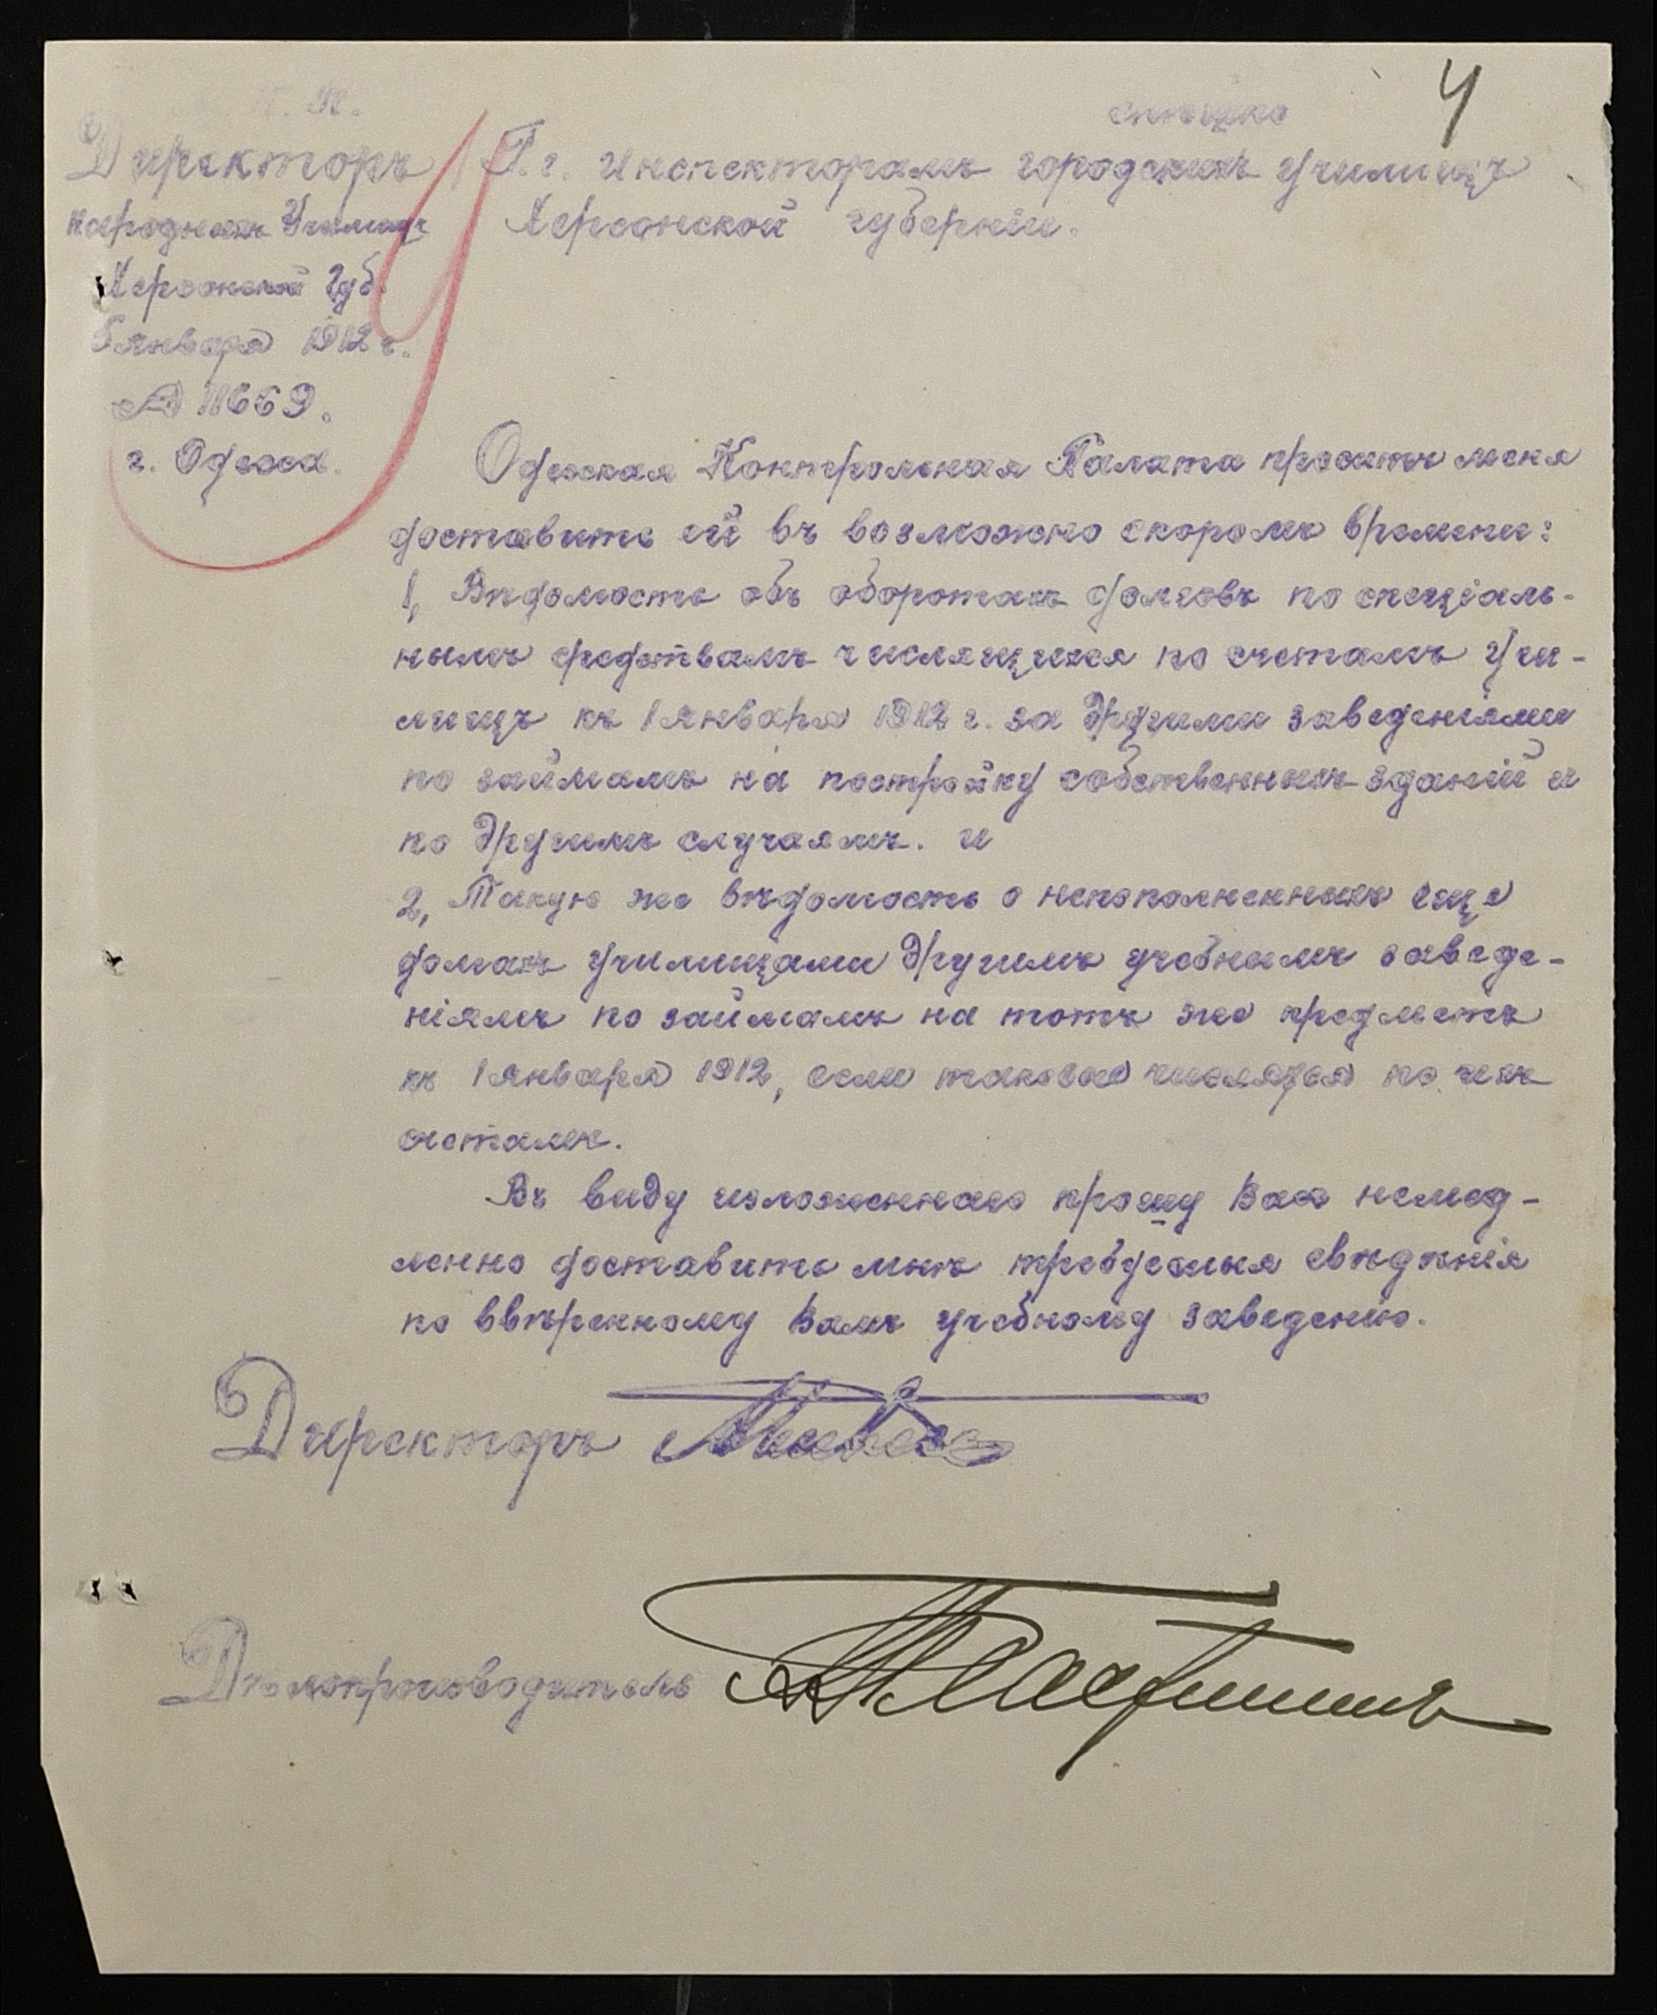 4
спѣшно
Директоръ
народныхъ Училищъ
Херсонской Губ.
5 января 1912 г.
№ 11669.
г. Одесса.
Г.г. Инспекторамъ городскихъ училищъ
Херсонской губерніи.
Одесская Контрольная Палата проситъ меня
доставить ей въ возможно скоромъ времени:
1, Вѣдомость объ оборотахъ долговъ по спеціаль-
нымъ средствамъ числящихся по счетамъ Учи-
лищъ къ 1 января 1912 г. за другими заведеніями
по займамъ на постройку собственныхъ зданій и
по другимъ случаямъ. и
2, Такую же вѣдомость о непополненныхъ еще
долгахъ училищами другимъ учебнымъ заведе-
ніямъ по займамъ на тотъ же предметъ
къ 1 января 1912, если таковые числятся по ихъ
счетамъ.
Въ виду изложеннаго прошу Васъ немед-
ленно доставить мнѣ требуемыя свѣдѣнія
по ввѣренному Вамъ учебному заведенію.
Директоръ
Дѣлопроизводитель